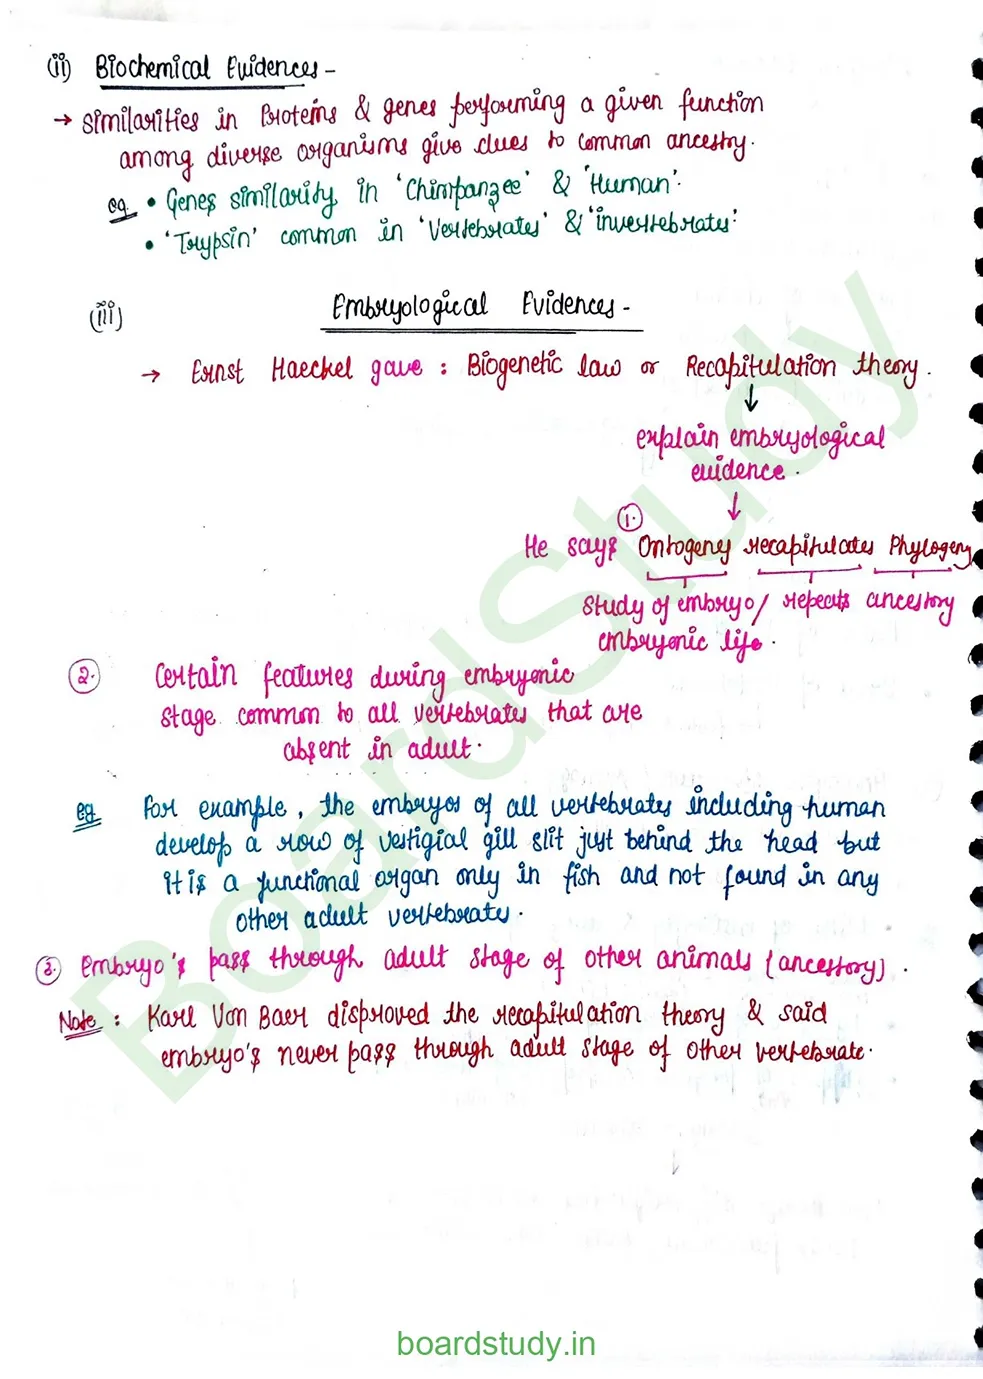 (ii) Biochemical Evidences -
→ Similarities in Proteins & genes performing a given function
among diverse organisms give clues to common ancestry.
eg. • Genes similarity in 'Chimpanzee' & 'Human'.
• 'Trypsin' common in 'Vertebrates' & 'invertebrates'
(iii) Embryological Evidences -
→ Ernst Haeckel gave : Biogenetic law or Recapitulation theory.
↓
explain embryological
evidence.
↓
He says ①. Ontogeny recapitulates Phylogeny
study of embryo/ repeats ancestory
embryonic life.
②. Certain features during embryonic
stage common to all vertebrates that are
absent in adult.
eg. For example, the embryos of all vertebrates including human
develop a row of vestigial gill slit just behind the head but
it is a functional organ only in fish and not found in any
other adult vertebrate.
③. Embryo's pass through adult stage of other animals (ancestory).
Note : Karl Von Baer disproved the recapitulation theory & said
embryo's never pass through adult stage of other vertebrate.
BoardStudy
boardstudy.in